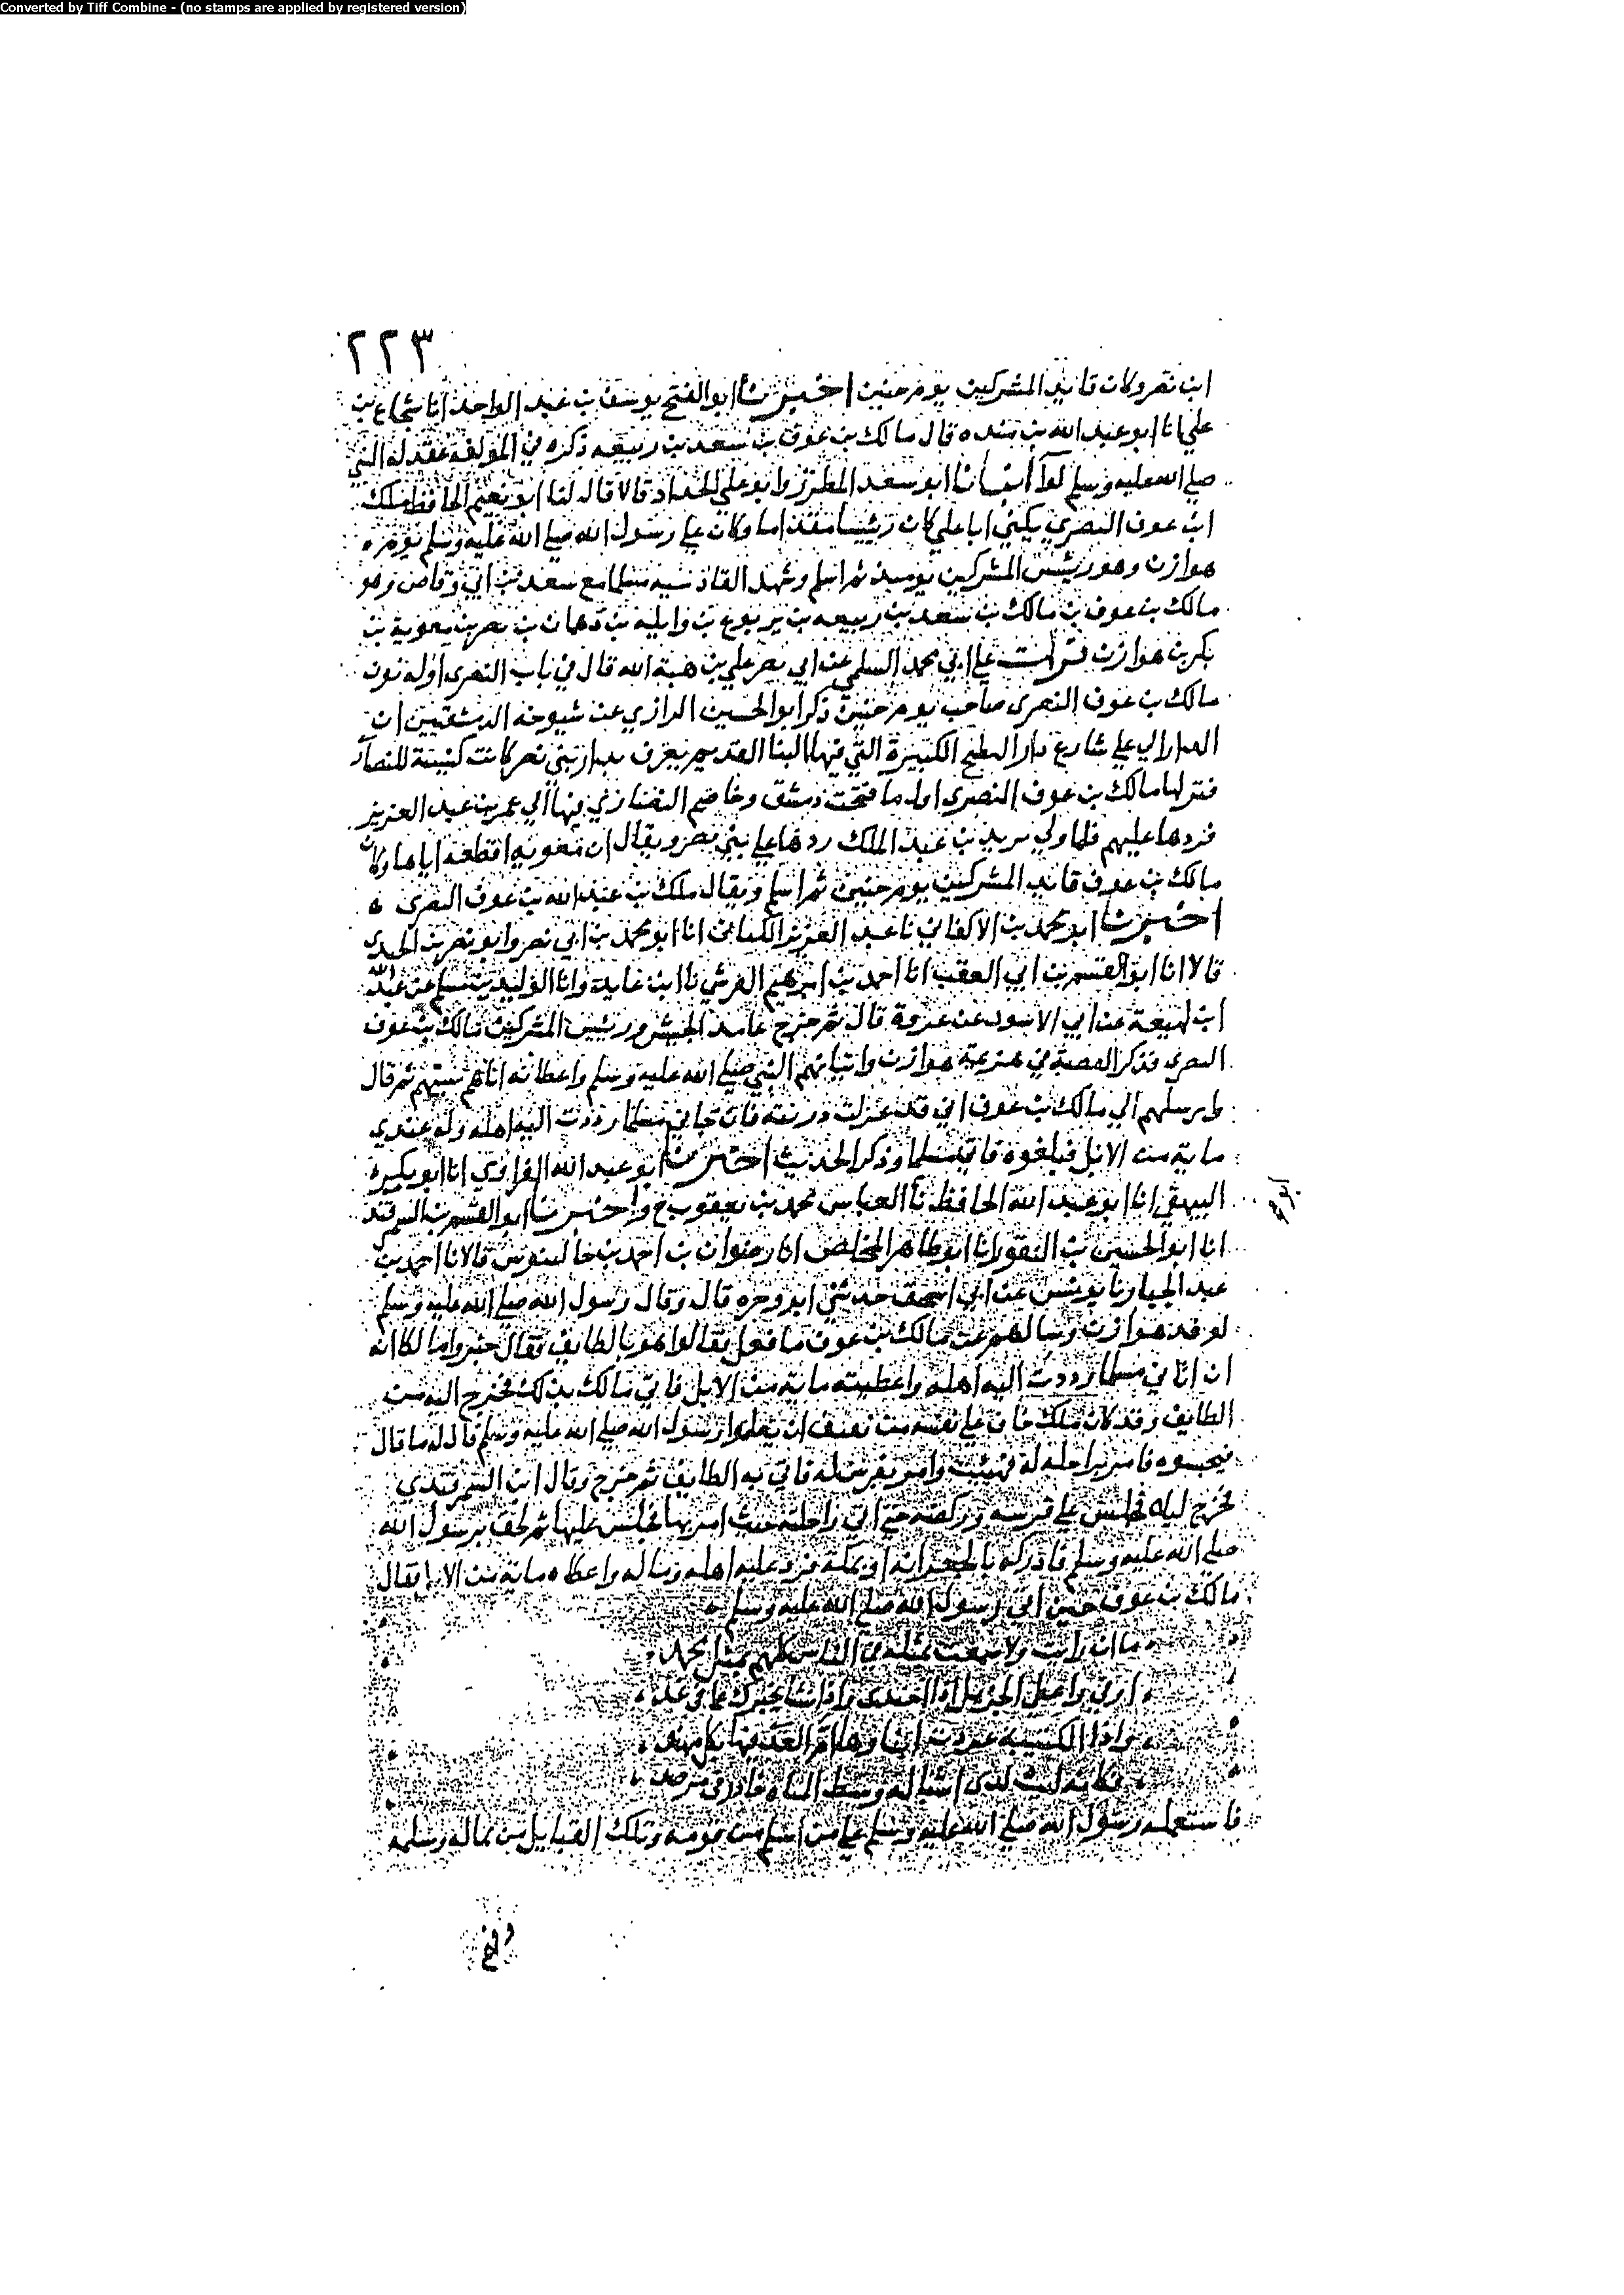 Converted by Tiff Combine - (no stamps are applied by registered version)
٢٢٣
ابن نصر وكان قايد المشركين يوم حنين اخبرنا ابو الفتح يوسف بن عبد الواحد انا شجاع بن
علي انا ابو عبد الله بن منده قال مالك بن عوف بن سعد بن ربيعه ذكره في المولفة عقد له النبي
صلي الله عليه وسلم لوآ انبانا ابو سعد المطرز وابو علي الحداد قالا قال لنا ابو نعيم الحافظ ملك
ابن عوف النصري يكني ابا علي كان رئيسا مقداما وكان علي رسول الله صلي الله عليه وسلم يوم
هوازن وهو رئيس المشركين يوميذ ثم اسلم وشهد القادسية مسلما مع سعد بن ابي وقاص وهو
مالك بن عوف بن مالك بن سعد بن ربيعه بن يربوع بن وايلة بن دهمان بن نصر بن معوية بن
بكر بن هوازن قرات علي ابي محمد السلمي عن ابي نصر علي بن هبة الله قال في باب النصرى اوله نون
مالك بن عوف النصرى صاحب يوم حنين ذكر ابو الحسين الرازي عن شيوخه الدمشقيين ان
الدار الي علي شارع دار البطيخ الكبيرة التي فيها البنا القديم يعرف بدار بني نصر كانت كنيسة للنصآ
فنزلها مالك بن عوف النصرى اول ما فتحت دمشق وخاصم النصارى فيها الي عمر بن عبد العزيز
فردها عليهم فلما ولي يزيد بن عبد الملك ردها علي بني نصر ويقال ان معوية اقطعه اياها وكان
مالك بن عوف قايد المشركين يوم حنين ثم اسلم ويقال ملك بن عبد الله بن عوف النصرى ه
اخبرنا ابو محمد بن الاكفاني نا عبد العزيز الكتاني انا ابو محمد بن ابي نصر وابو نصر بن الجندى
قالا انا ابو القسم بن ابي العقب انا احمد بن ابرهيم القرشي نا ابن عايذ وانا الوليد بن مسلم عن عبد الله
ابن لهيعة عن ابي الاسود عن عروة قال ثم خرج عامد الجيش ورئيس المشركين مالك بن عوف
النصرى فذكر القصة في هزيمة هوازن واتيانهم النبي صلي الله عليه وسلم واعطائه اياهم سبيهم ثم قال
وارسلهم الي مالك بن عوف اني قد عزلت ذريته فان جاني مسلما رددت اليه اهله وله عندي
ماية من الابل فبلغوه فاتي مسلما وذكر الحديث اخبرنا ابو عبد الله الفراوي انا ابو بكر
البيهقي انا ابو عبد الله الحافظ نا العباس محمد بن يعقوب ح واخبرنا ابو القسم بن السمرقند
ابو
انا ابو الحسين بن النقور انا ابو طاهر المخلص انا رضوان بن احمد بن جالينوس قالا نا احمد بن
عبد الجبار نا يونس عن ابي اسحق حدثني ابو وجزه قال وقال رسول الله صلي الله عليه وسلم
لوفد هوازن وسالهم عن مالك بن عوف ما فعل فقالوا هو بالطايف فقال خبروا مالكا انه
ان اتاني مسلما رددت اليه اهله واعطيته ماية من الابل فاتي مالك بذلك فخرج اليه من
الطايف وقد كان ملك خاف علي نفسه من ثقيف ان يعلموا رسول الله صلي الله عليه وسلم قال له ما قال
فيحبسوه فامر براحلة له فهيئت وامر بفرس له فاتي به الطايف ثم خرج وقال ابن السمرقندي
فخرج ليلا فجلس علي فرسه وركضه حتي اتي راحلته حيث امر بها فجلس عليها ثم لحق برسول الله
صلي الله عليه وسلم فادركه بالجعرانه او بمكة فرد عليه اهله وماله واعطاه ماية من الابل فقال
مالك بن عوف حين اتي رسول الله صلي الله عليه وسلم
ما ان رايت ولا سمعت بمثله في الناس كلهم بمثل محمد
اوفي واعطي الجزيل اذا اجتدى واذا تشا يخبرك عما في غد
واذا الكتيبة عردت انيابها
فكانه ليث لدى اشباله وسط المباه خادر في مرصد
فاستعمله رسول الله صلي الله عليه وسلم علي من اسلم من قومه وتلك القبايل من ثماله وسلمه
وفهم